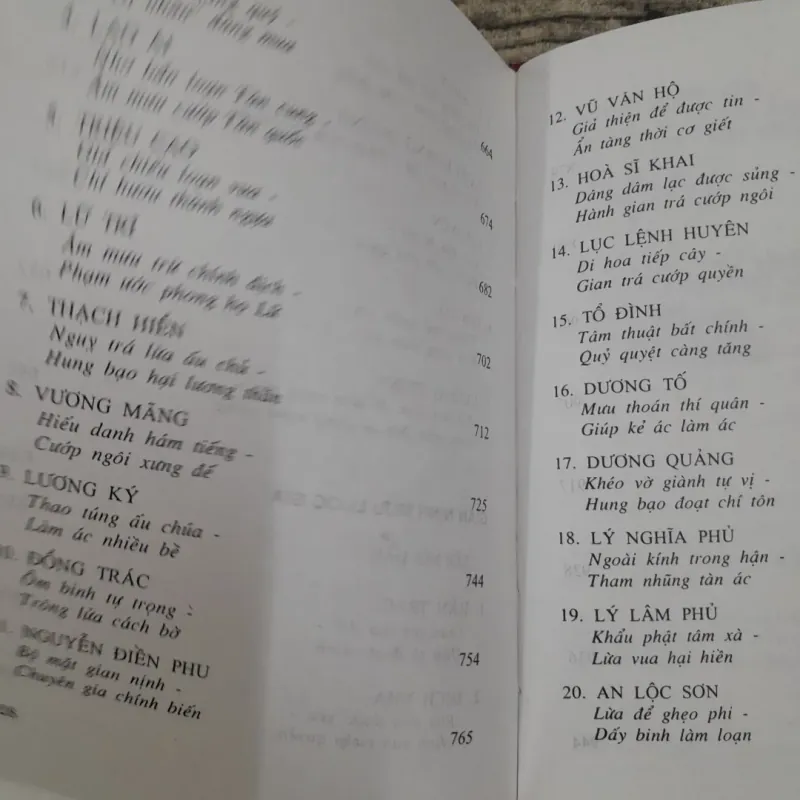 Âm mưu cướp Tần quốc
664
Chỉ hươu thành ngựa
674
6. LỮ TRĨ
Âm mưu trừ chính địch -
Phạm ước phong họ Lã
682
7. THẠCH HIỂN
Nguỵ trá lừa ấu chủ -
Hung bạo hại lương thần
702
8. VƯƠNG MÃNG
Hiếu danh hám tiếng -
Cướp ngôi xưng đế
712
9. LƯƠNG KÝ
Thao túng ấu chúa -
Làm ác nhiều bề
725
10. ĐỔNG TRÁC
Ôm binh tự trọng -
Trông lửa cách bờ
744
NGUYỄN ĐIỀN PHU
Bộ mặt gian nịnh -
Chuyên gia chính biến
754
765
12. VŨ VĂN HỘ
Giả thiện để được tin -
Ẩn tàng thời cơ giết
13. HOÀ SĨ KHAI
Dâng dâm lạc được sủng -
Hành gian trá cướp ngôi
14. LỤC LỆNH HUYÊN
Di hoa tiếp cây -
Gian trá cướp quyền
15. TỔ ĐÌNH
Tâm thuật bất chính -
Quỷ quyệt càng tăng
16. DƯƠNG TỐ
Mưu thoán thí quân -
Giúp kẻ ác làm ác
17. DƯƠNG QUẢNG
Khéo vờ giành tự vị -
Hung bạo đoạt chí tôn
18. LÝ NGHĨA PHỦ
Ngoài kính trong hận -
Tham nhũng tàn ác
19. LÝ LÂM PHỦ
Khẩu phật tâm xà -
Lừa vua hại hiền
20. AN LỘC SƠN
Lừa để ghẹo phi -
Dấy binh làm loạn